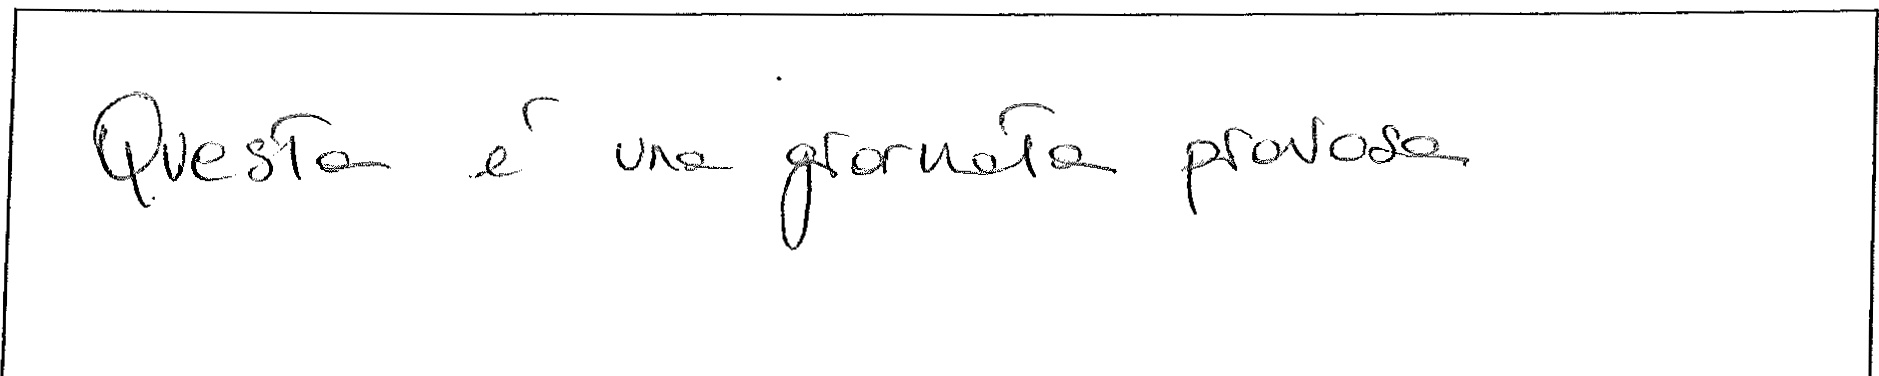 Questa è una giornata piovosa